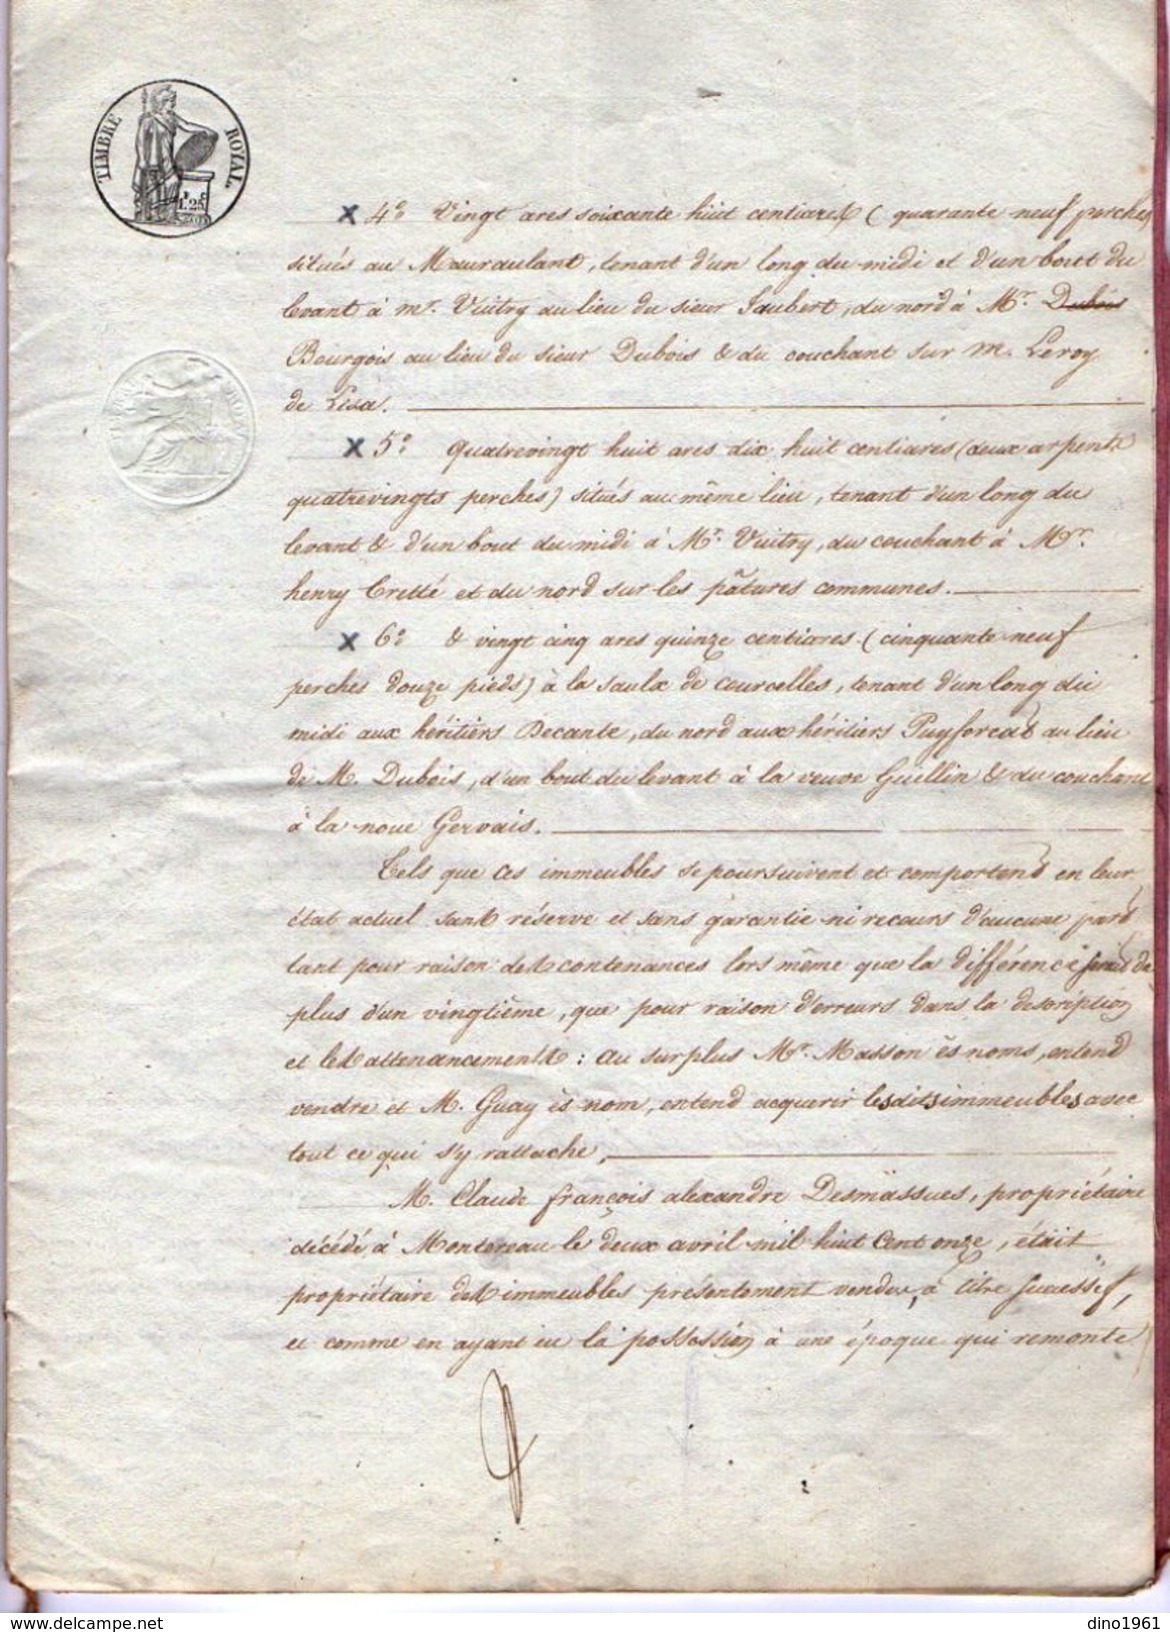 TIMBRE ROYAL.
1.25
4° Vingt ares soixante huit centiares ( quarante neuf perches
situés au Mauraulant, tenant d'un long du midi et d'un bout du
levant à mr. Vuitry au lieu du sieur Jaubert, du nord à Mr. Dubois
Bourgois au lieu du sieur Dubois & du couchant sur m. Leroy
de Lisa.
5° quatrevingt huit ares dix huit centiares (deux arpents
quatrevingts perches) situés au même lieu, tenant d'un long du
levant & d'un bout du midi à Mr. Vuitry, du couchant à Mr.
henry Cretté et du nord sur les pâtures communes.
6° & vingt cinq ares quinze centiares (cinquante neuf
perches douze pieds) à la saulx de courcelles, tenant d'un long du
midi aux héritiers Decante, du nord aux héritiers Puyforcat au lieu
de M. Dubois, d'un bout du levant à la veuve Guellin & du couchant
à la noue Gervais.
Tels que ces immeubles se poursuivent et comportent en leur
état actuel sans réserve et sans garantie ni recours d'aucune part
tant pour raison des contenances lors même que la différence serait de
plus d'un vingtième, que pour raison d'erreurs dans la description
et les attenancements : au surplus Mr. Masson ès noms, entend
vendre et M. Guay ès nom, entend acquérir lesdits immeubles avec
tout ce qui s'y rattache,
M. Claude françois alexandre Desmassues, propriétaire
décédé à Montereau le deux avril mil huit cent onze, était
propriétaire des immeubles présentement vendus, à titre successif,
et comme en ayant eu la possession à une époque qui remonte
dino1961